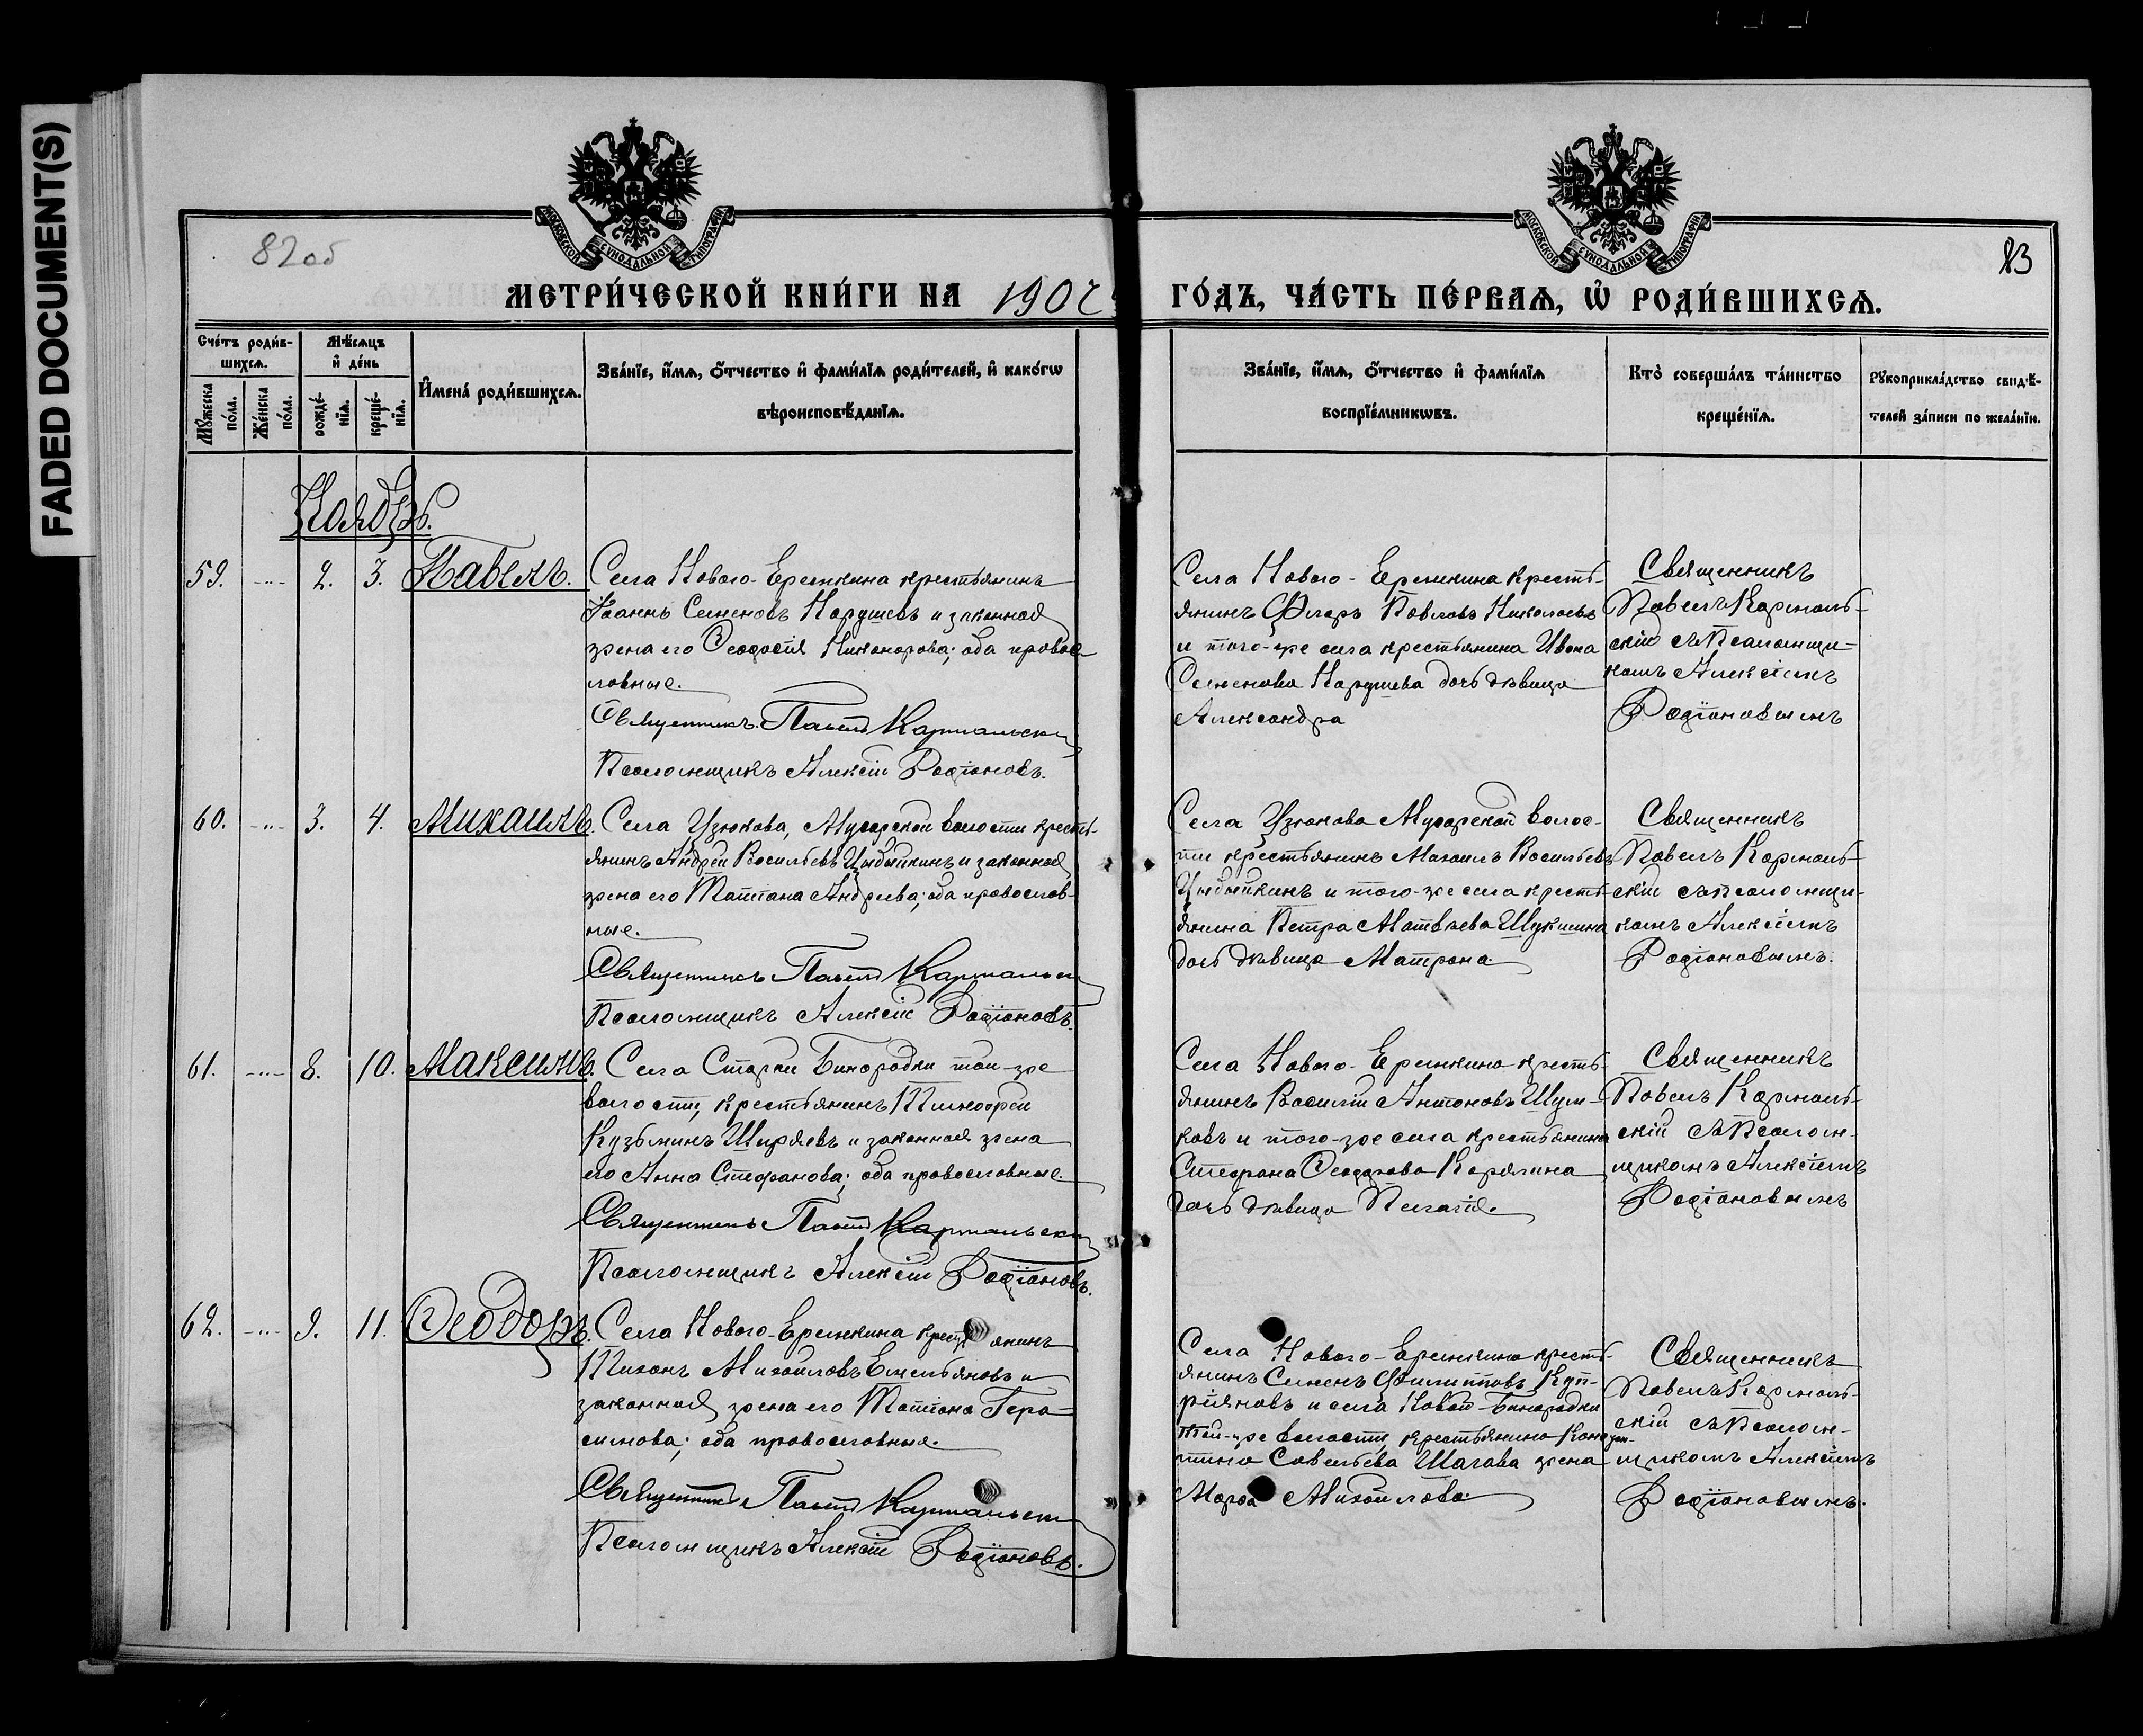 FADED DOCUMENT(S)
82об
83
МОСКОВСКОЙ СУНОДАЛЬНОЙ ТИПОГРАФІИ
МОСКОВСКОЙ СУНОДАЛЬНОЙ ТИПОГРАФІИ
МЕТРИ́ЧЕСКОЙ КНИ́ГИ НА 190
ГО́ДЪ, ЧА́СТЬ ПЕ́РВАѦ, Ѽ РОДИ́ВШИХСѦ.
Сче́тъ роди́в-
шихсѧ.
Мꙋ́жеска по́ла.
Же́нска по́ла.
Мѣ́сѧцъ
и҆ де́нь
рожде́-
нїѧ.
креще́-
нїѧ.
И҆мена̀ роди́вшихсѧ.
Зва́нїе, и҆́мѧ, ѻ҆́тчество и҆ фами́лїѧ роди́телей, и҆ како́гѡ
вѣроисповѣ́данїѧ.
Зва́нїе, и҆́мѧ, ѻ҆́тчество и҆ фами́лїѧ
воспрїе́мникѡвъ.
Кто̀ соверша́лъ та́инство
креще́нїѧ.
Рꙋкоприкла́дство свидѣ́-
телей за́писи по жела́нїю.
Ноябрь.
59. -"- 2. 3. Павелъ.
Села Нового-Еремкина крестьянинъ
Іоаннъ Семеновъ Парушевъ и законная
жена его Ѳеодосія Никанорова; оба правос-
лавные.
Священникъ Павелъ Кармальскій
Псаломщикъ Алексій Родіоновъ.
Села Нового-Еремкина кресть-
янинъ Флоръ Павловъ Николаевъ
и того-же села крестьянина Ивана
Семенова Парушева дочь дѣвица
Александра
Священникъ
Павелъ Кармаль-
скій съ Псаломщи-
комъ Алексіемъ
Родіоновымъ
60. -"- 3. 4. Михаилъ.
Села Узюкова, Мусорской волости кресть-
янинъ Андрей Васильевъ Цыбыйкинъ и законная
жена его Татіана Андреева; оба православ-
ные.
Священникъ Павелъ Кармальскій
Псаломщикъ Алексій Родіоновъ.
Села Узюкова Мусорской волос-
ти крестьянинъ Михаилъ Васильевъ
Цыбыйкинъ и того-же села кресть-
янина Петра Матвѣева Шукшина
дочь дѣвица Матрона
Священникъ
Павелъ Кармаль-
скій съ Псаломщи-
комъ Алексіемъ
Родіоновымъ.
61. -"- 8. 10. Максимъ.
Села Старой Бинарадки той-же
волости, крестьянинъ Тимофей
Кузьминъ Ширяевъ и законная жена
его Анна Стефанова; оба православные.
Священникъ Павелъ Кармальскій
Псаломщикъ Алексій Родіоновъ.
Села Нового-Еремкина кресть-
янинъ Василій Антоновъ
и того-же села крестьянина
Стефана Ѳеодорова Карягина
дочь дѣвица Пелагія.
Священникъ
Павелъ Кармаль-
скій съ Псалом-
щикомъ Алексіемъ
Родіоновымъ
62. -"- 9. 11. Ѳеодоръ.
Села Нового-Еремкина крестьянинъ
Тихонъ Михайловъ Емельяновъ и
законная жена его Татіана Гера-
симова; оба православные.
Священникъ Павелъ Кармальскій
Псаломщикъ Алексій Родіоновъ.
Села Нового-Еремкина кресть-
янинъ Семенъ Филипповъ Куп-
ріяновъ и села Новой-Бинарадки
той-же волости, крестьянина Констан-
тина Савельева Шагова жена
Марѳа Михайлова
Священникъ
Павелъ Кармаль-
скій съ Псалом-
щикомъ Алексіемъ
Родіоновымъ.